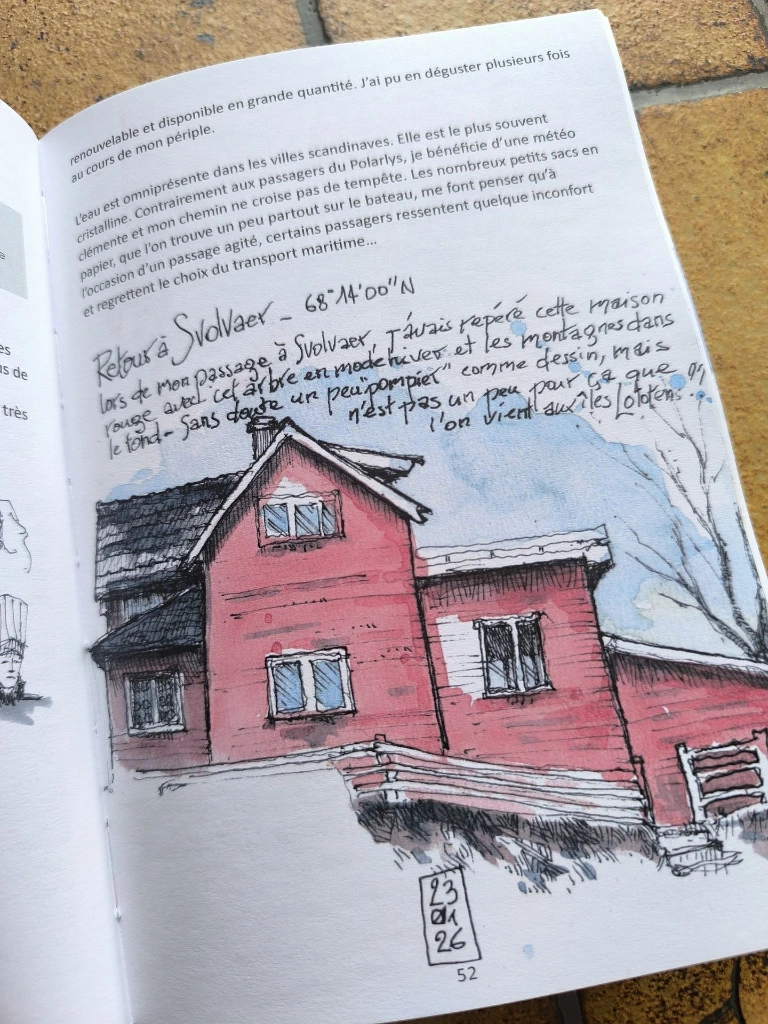 renouvelable et disponible en grande quantité. J'ai pu en déguster plusieurs fois
au cours de mon périple.
L'eau est omniprésente dans les villes scandinaves. Elle est le plus souvent
cristalline. Contrairement aux passagers du Polarlys, je bénéficie d'une météo
clémente et mon chemin ne croise pas de tempête. Les nombreux petits sacs en
papier, que l'on trouve un peu partout sur le bateau, me font penser qu'à
l'occasion d'un passage agité, certains passagers ressentent quelque inconfort
et regrettent le choix du transport maritime...
Retour à Svolvaer - 68°14'00"N
lors de mon passage à Svolvaer, j'avais repéré cette maison
rouge avec cet arbre en mode hiver et les montagnes dans
le fond - Sans doute un peu "pompier" comme dessin, mais
n'est pas un peu pour ça que
l'on vient aux îles Lofotens
23
01
26
52
e
es
us de
très